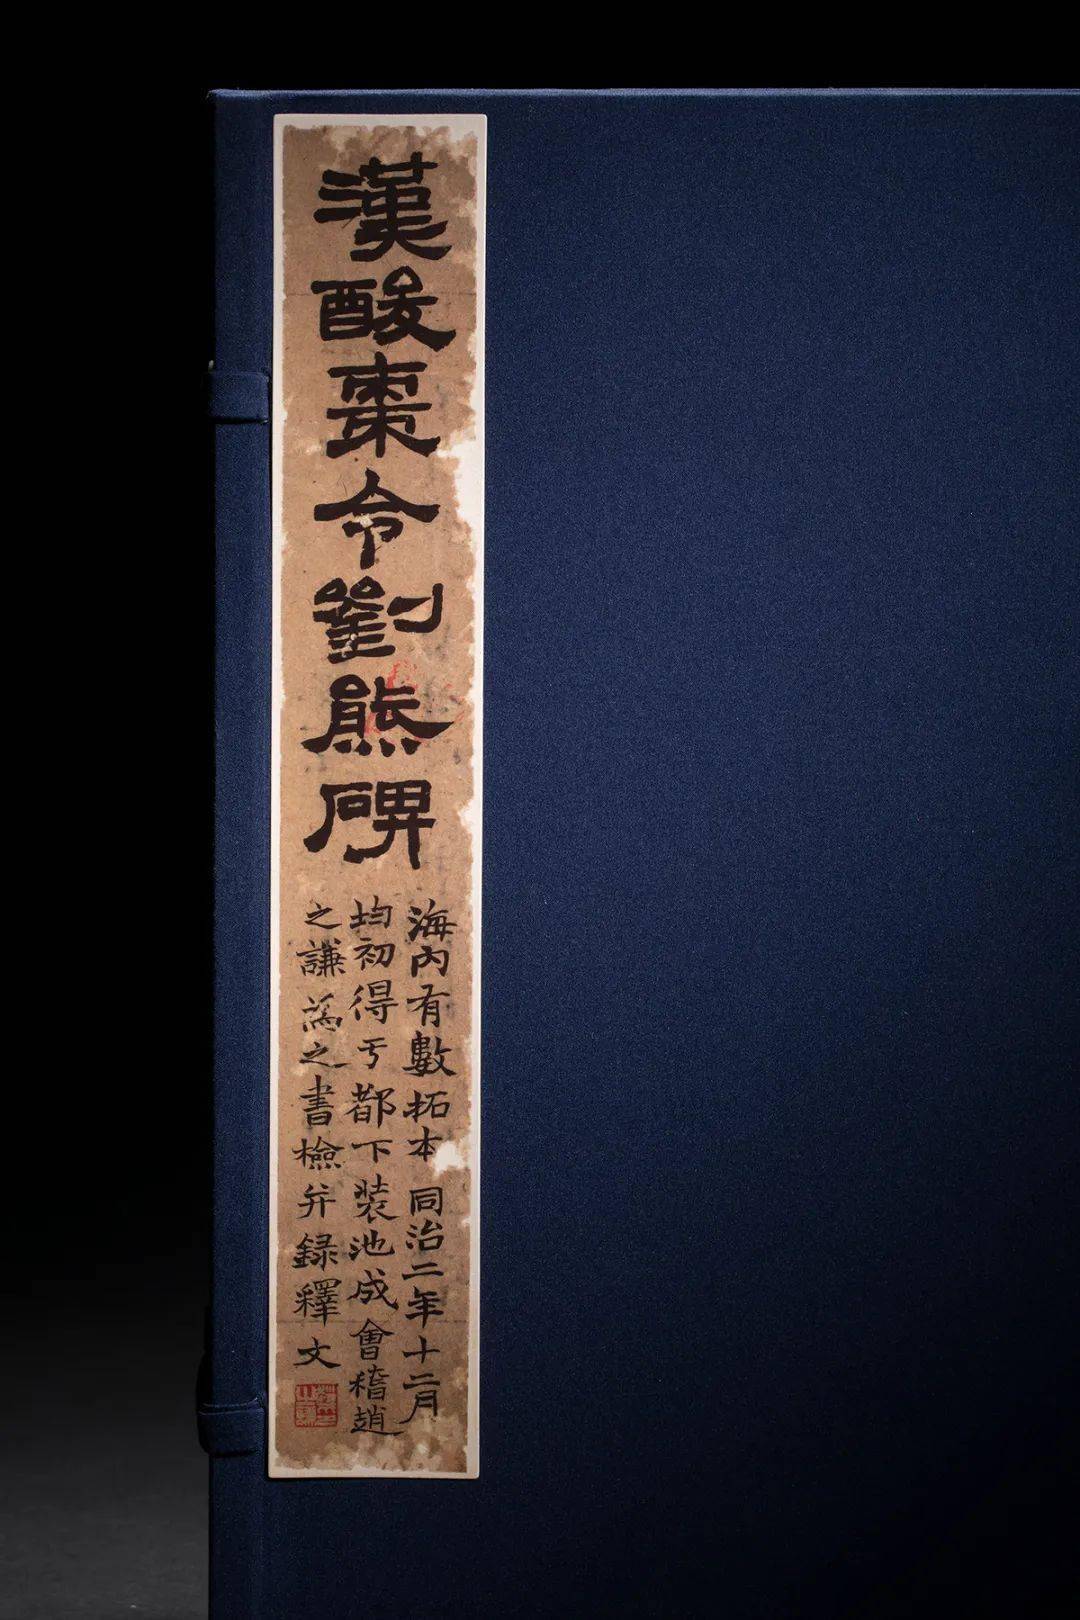 漢酸棗令劉熊碑
海内有數拓本 同治二年十二月
均初得于都下裝池成會稽趙
之謙為之書檢并録釋文